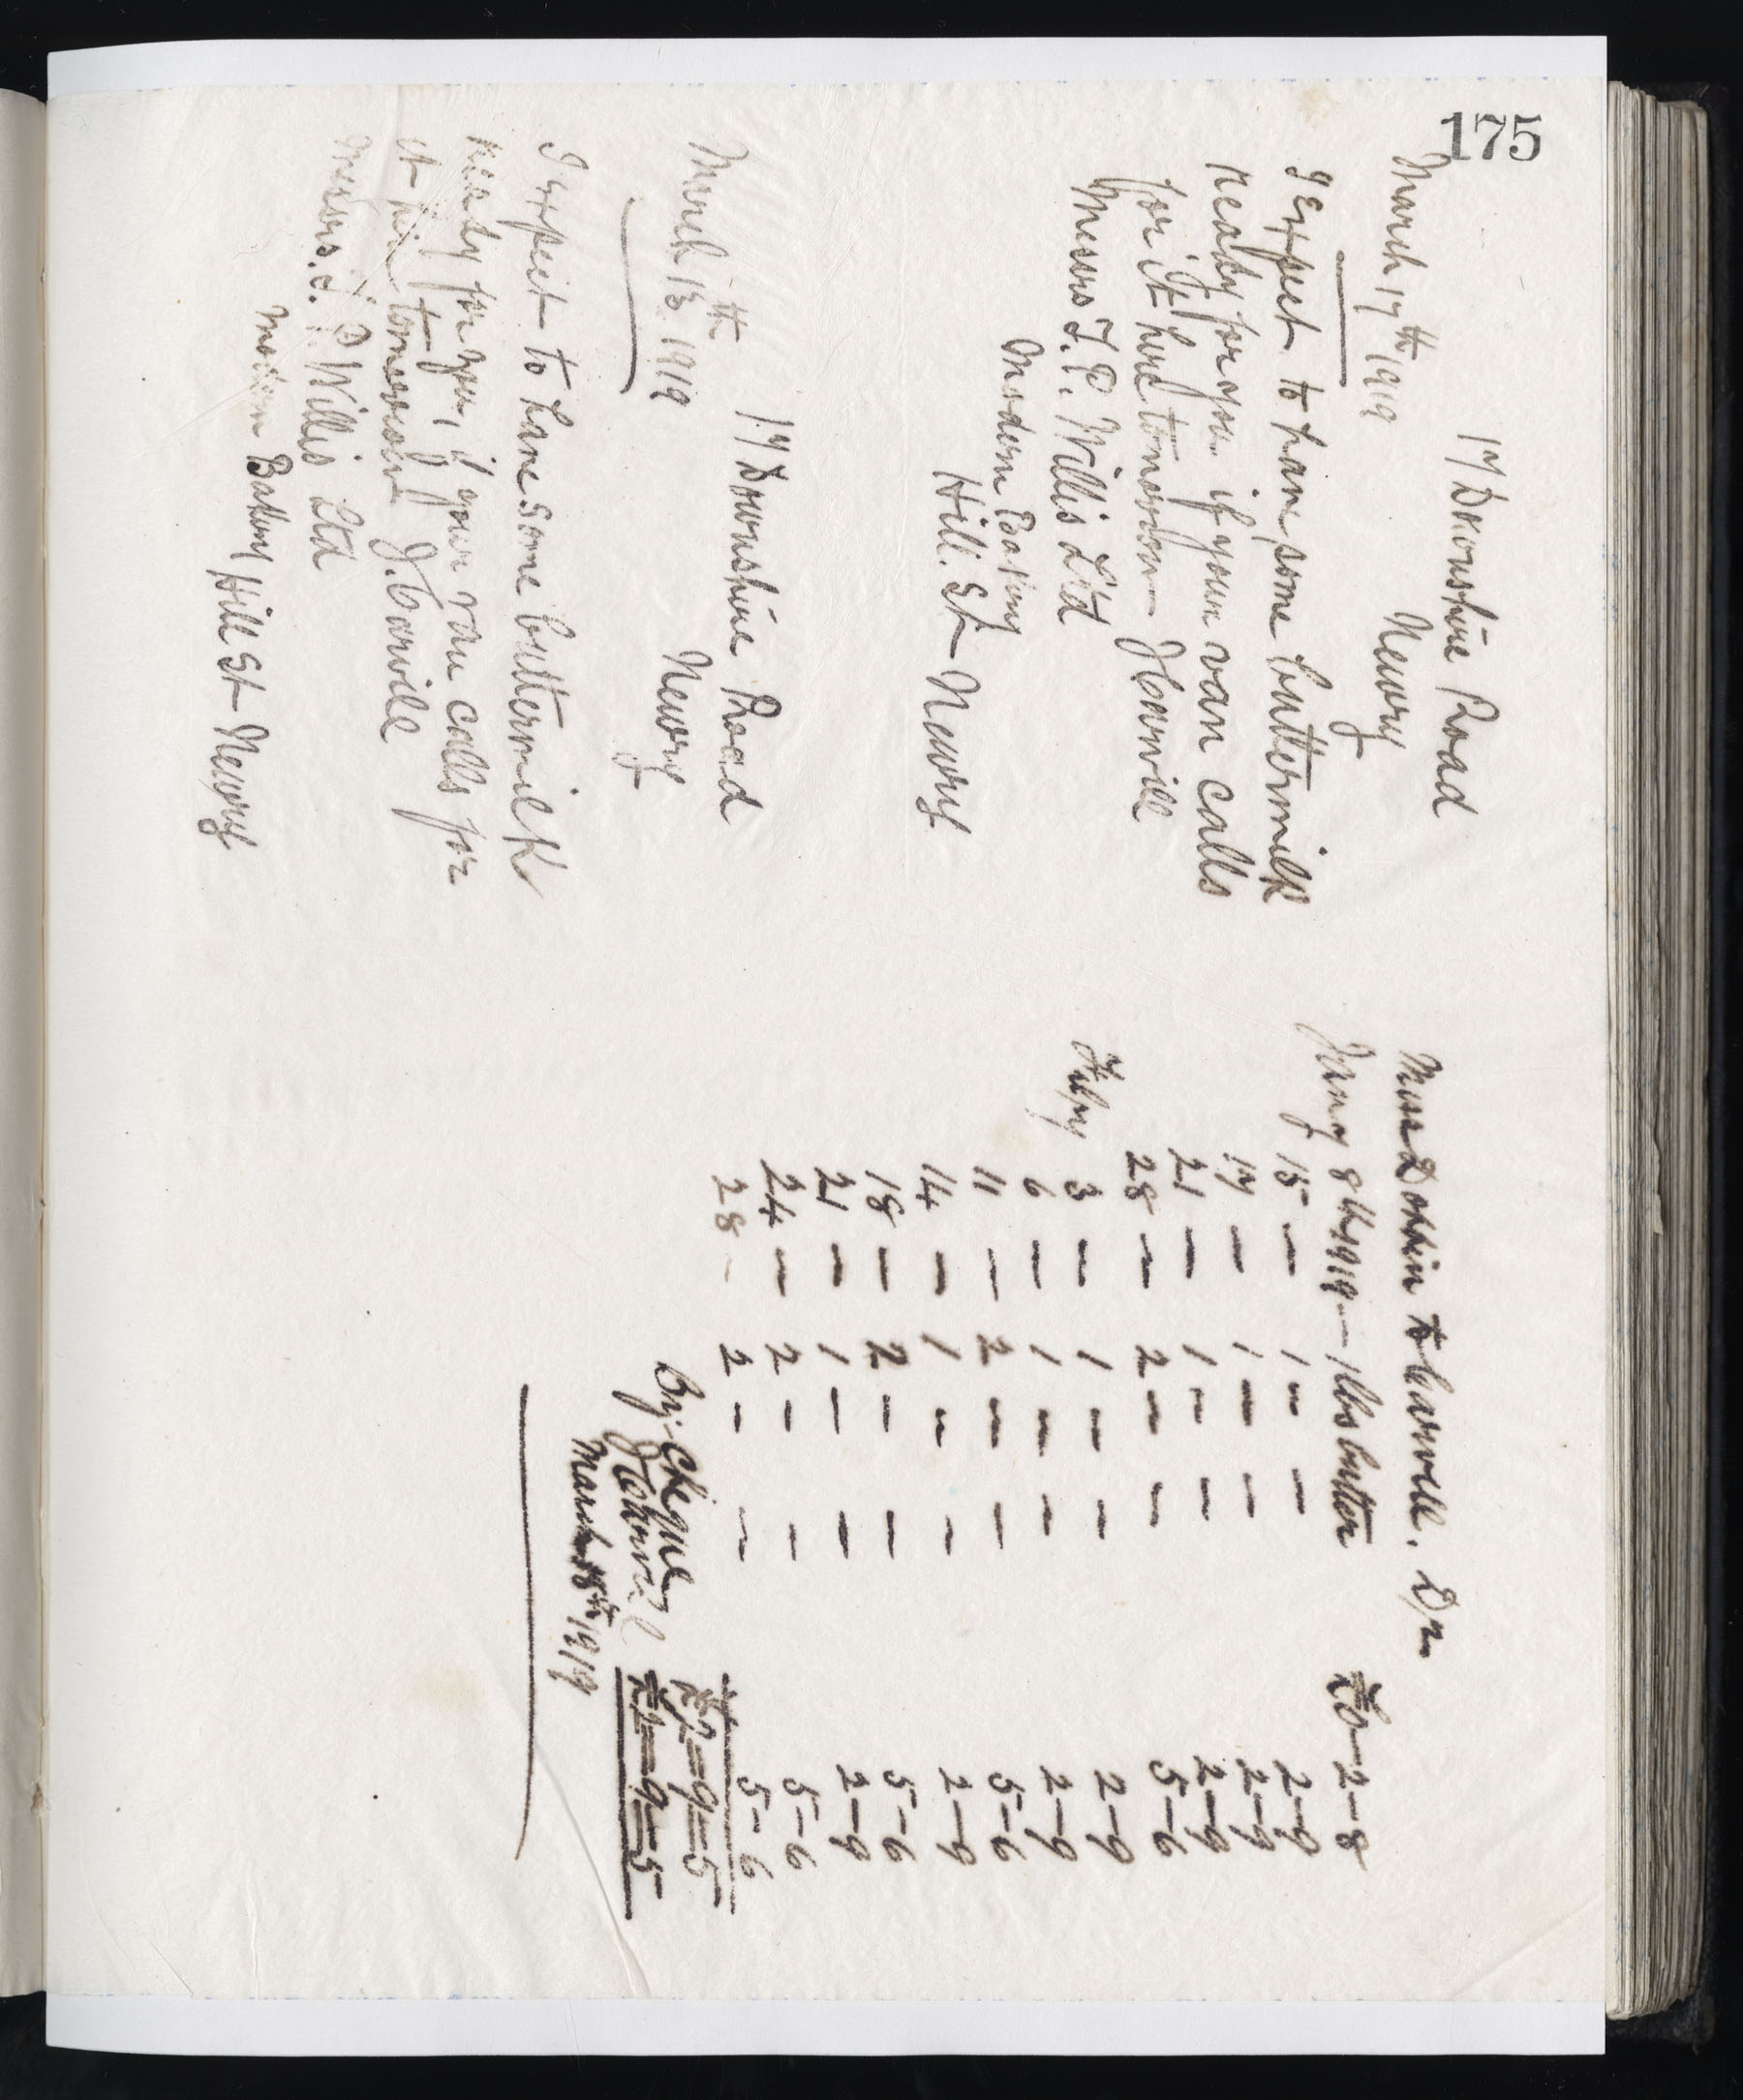 175
17 Downshire Road
Newry
March 17th 1919
I expect to have some buttermilk
ready for you if your van calls
for it here tomorrow J Carvill
Messrs T. P. Willis Ltd
Modern Bakery
Hill. St Newry
17 Downshire Road
Newry
March 13th 1919
I expect to have some buttermilk
ready for you, if your van calls for
it here tomorrow J. Carvill
Messrs. T. P. Willis Ltd
Modern Bakery Hill St Newry
Miss to Carvill. Dr
Jany 8th 1919 — 1 lbs butter £0—2—8
15 — 1 — — 2—9
17 — 1 — — 2—9
21 — 1 — — 2—9
28 — 2 — — 5—6
Feby 3 — 1 — — 2—9
6 — 1 — — 2—9
11 — 2 — — 5—6
14 — 1 — — 2—9
18 — 2 — — 5—6
21 — 1 — — 2—9
24 — 2 — — 5—6
28 — 2 — — 5—6
£2—9—5
By Cheque £2—9—5
J Carvill
March 18th 1919